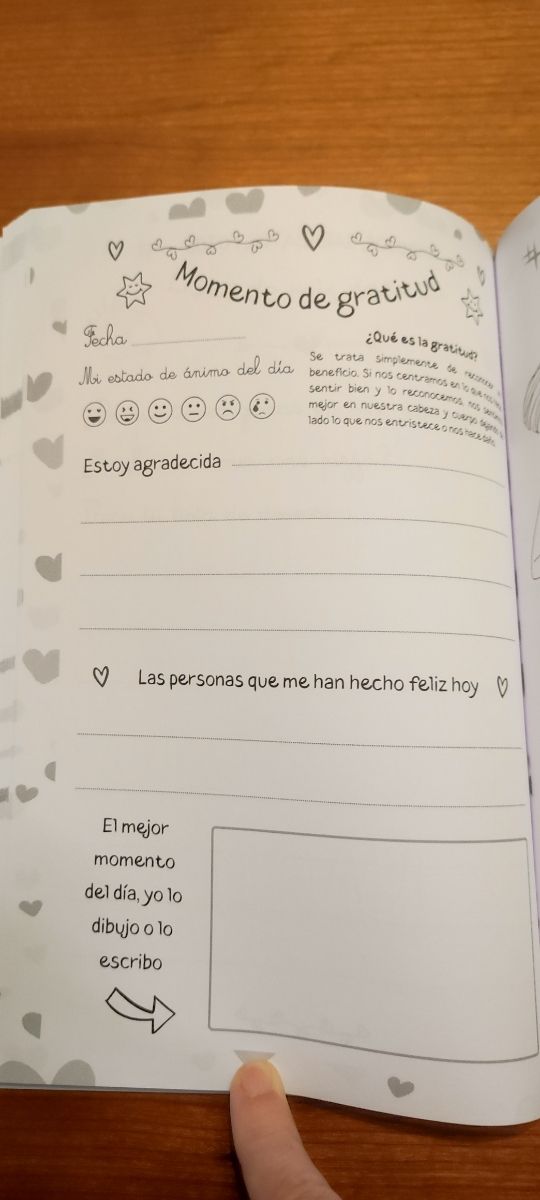 Momento de gratitud
Fecha
¿Qué es la gratitud?
Se trata simplemente de reconocer
beneficio. Si nos centramos en lo que nos
sentir bien y lo reconocemos, nos
mejor en nuestra cabeza y cuerpo
lado lo que nos entristece o nos hace daño.
Mi estado de ánimo del día
Estoy agradecida
Las personas que me han hecho feliz hoy
El mejor
momento
del día, yo lo
dibujo o lo
escribo